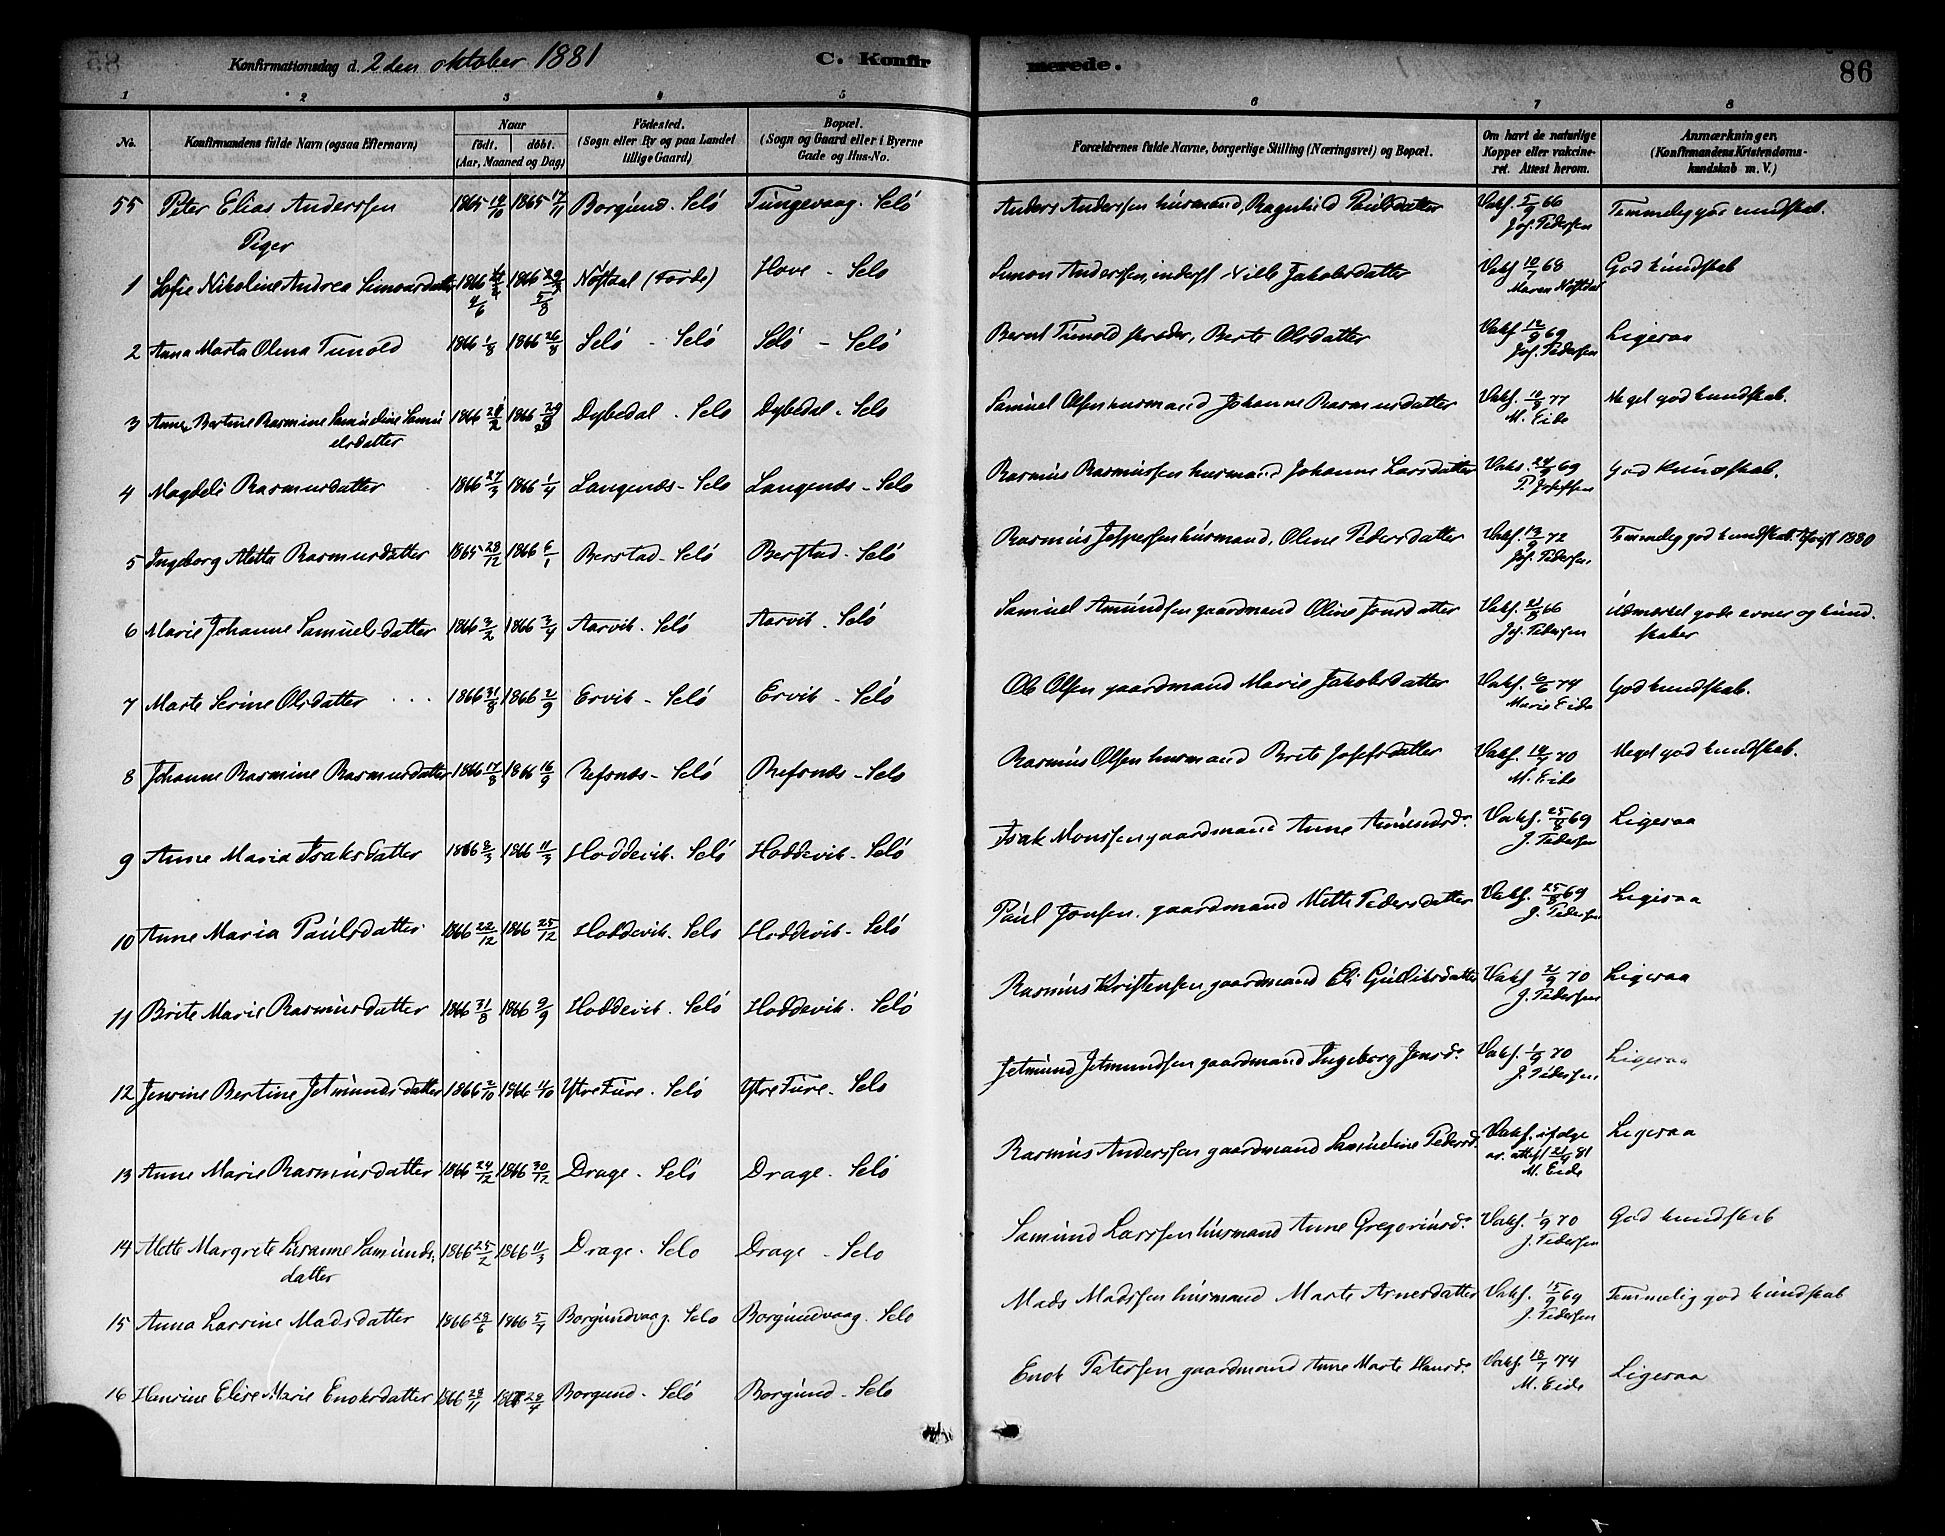 Konfirmationsdag d. 2den oktober 1881 C. Konfirmerede. 86
1 2 3 4 5 6 7 8
No. Konfirmandens fulde Navn (ogsaa Efternavn) Naar födt. döbt. (Aar, Maaned og Dag) Födested. (Sogn eller By og paa Landet tillige Gaard) Bopæl. (Sogn og Gaard eller i Byerne Gade og Hus-No. Forældrenes fulde Navne, borgerlige Stilling (Næringsvei) og Bopæl. Om havt de naturlige Kopper eller vakcineret. Attest herom. Anmærkninger. (Konfirmandens Kristendomskundskab m. V.)
55 Peter Elias Anderssen 1865 19/10 1865 17/11 Borgund. Selö Tungevaag. Selö Anders Anderssen husmand, Ragnhild Paulsdatter Vakf. 5/9 66 Jos. Pedersen Temmelig god kundskab.
Piger
1 Sofie Nikoline Andrea Simonsdatter 1866 4/6 1866 5/8 Nöstdal (Förde) Hove - Selö Simon Anderssen, inderst Nille Jakobsdatter Vakf. 10/7 68 Maren Nöstdal God kundskab
2 Anna Marta Olena Tunold 1866 1/8 1866 26/8 Selö - Selö Selö - Selö Bernt Tunold skræder, Berte Olsdatter Vakf. 12/9 69 Jos. Pedersen Ligesaa
3 Anne Bertine Rasmine Samueline Samuelsdatter 1866 28/2 1866 Dybedal - Selö Dybedal - Selö Samuel Olsen husmand Johanne Rasmusdatter Vakf. 10/8 77 M. Eide Meget god kundskab.
4 Magdeli Rasmusdatter 1866 27/3 1866 1/4 Langenæs - Selö Langenæs - Selö Rasmus Rasmussen husmand Johanne Larsdatter Vaks. 24/9 69 P. Josefsen God kundskab.
5 Ingeborg Aletta Rasmusdatter 1865 28/12 1866 6/1 Berstad - Selö Berstad - Selö Rasmus Jespersen husmand, Oline Pedersdatter Vakf. 13/9 72 Jos. Pedersen. Temmelig god kundskab. 1880
6 Marie Johanne Samuelsdatter 1866 3/2 1866 3/4 Aarvik - Selö Aarvik - Selö Samuel Amundsen gaardmand Oline Jonsdatter Vakf. 21/8 66 Jos. Pedersen Udmærket gode evner og kundskaber
7 Marte Serine Olsdatter 1866 31/8 1866 2/9 Ervik - Selö Ervik - Selö Ole Olsen gaardmand Marie Jakobsdatter Vakf. 6/6 74 Marie Eide God kundskab.
8 Johanne Rasmine Rasmusdatter 1866 17/8 1866 16/9 Refsnæs - Selö Refsnæs - Selö Rasmus Olsen husmand Brite Josefsdatter Vakf. 70 M. Eide Meget god kundskab.
9 Anne Maria Isaksdatter 1866 2/3 1866 11/3 Hoddevik. Selö Hoddevik. Selö Isak Monssen gaardmand Anne Amundsd. Vakf. 25/8 69 J. Pedersen Ligesaa
10 Anne Maria Paulsdatter 1866 22/12 1866 25/12 Hoddevik. Selö Hoddevik. Selö Paul Jonsen. gaardmand Mette Pedersdatter Vakf. 25/8 69 J. Pedersen Ligesaa
11 Brite Marie Rasmusdatter 1866 31/8 1866 9/9 Hoddevik. Selö Hoddevik. Selö Rasmus Kristensen gaardmand Eli Gulliksdatter Vakf 2/9 70 J. Pedersen Ligesaa
12 Jensine Bertine Jetmundsdatter 1866 2/10 1866 4/10 Ytre Fure. Selö Ytre Fure. Selö Jetmund Jetmundsen gaardmand Ingeborg Jensd. Vakf. 1/9 70 J. Pedersen. Ligesaa
13 Anne Marie Rasmusdatter 1866 24/12 1866 30/12 Drage. Selö Drage. Selö Rasmus Anderssen gaardmand Samueline Pedersd. Vakf. ifølge attest 21/9 81 M. Eide Ligesaa
14 Alette Margrete Susanne Samundsdatter 1866 25/2 1866 11/3 Drage. Selö Drage - Selö Samund Larssen husmand Anne Gregoriusd. Vakf. 1/9 70 J. Pedersen God kundskab
15 Anna Larsine Madsdatter 1866 28/6 1866 5/7 Borgundvaag. Selö Borgundvaag. Selö Mads Madssen husmand Marte Arnesdatter Vakf. 15/9 69 J. Pedersen Temmelig god kundskab
16 Hensine Elise Marie Enoksdatter 1866 28/11 1867 28/4 Borgund - Selö Borgund - Selö Enok Petersen gaardmand Anne Marte Hansd. Vakf. 18/7 74 M. Eide Ligesaa